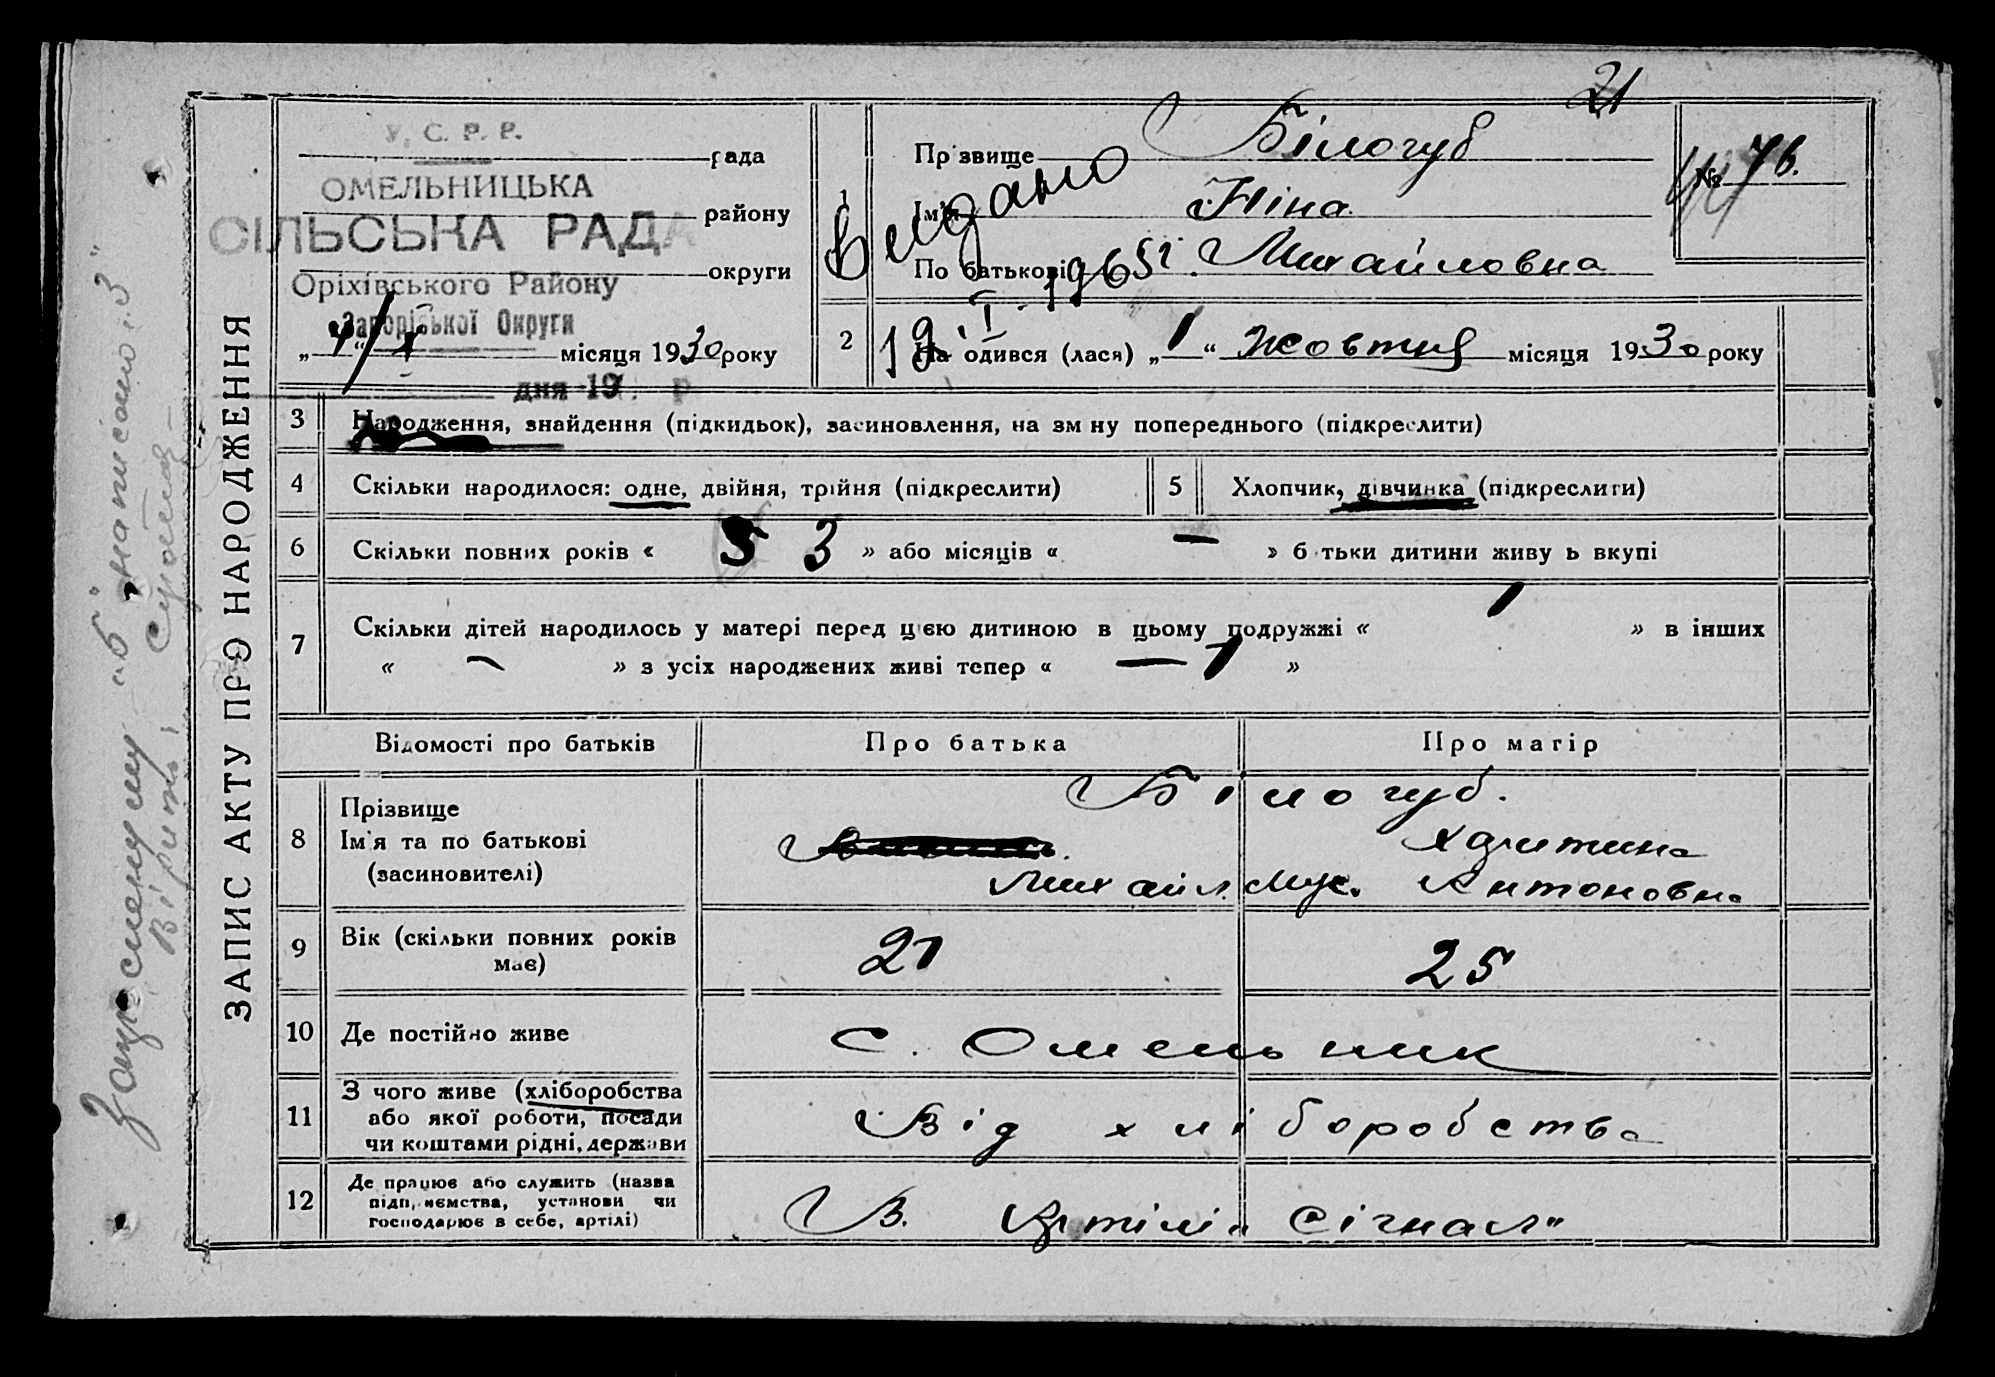 21
У. С. Р. Р.
рада
ОМЕЛЬНИЦЬКА
району
СІЛЬСЬКА РАДА
округи
Оріхівського Району
Запорізької Округи
„4“ X місяця 1930 року
дня 19 р
1
Прізвище Білогуб
Ім'я Ніна
По батькові Михайловна
№ 76.
Видано
19.I.1965г.
2
На одився (лася) „1“ жовтня місяця 1930 року
ЗАПИС АКТУ ПРО НАРОДЖЕННЯ
3 Народження, знайдення (підкидьок), засиновлення, на зм ну попереднього (підкреслити)
4 Скільки народилося: одне, двійня, трійня (підкреслити)
5 Хлопчик, дівчинка (підкреслити)
6 Скільки повних років « 3 » або місяців « — » б тьки дитини живу ь вкупі
7 Скільки дітей народилось у матері перед цією дитиною в цьому подружжі « 1 » в інших
« — » з усіх народжених живі тепер « — 1 »
Відомості про батьків Про батька Про матір
8 Прізвище
Ім'я та по батькові
(засиновителі)
Білогуб.
Михайл Мус. Харитина Антоновна
9 Вік (скільки повних років
має)
21 25
10 Де постійно живе с. Омельник
11 З чого живе (хліборобства
або якої роботи, посади
чи коштами рідні, держави
Від хліборобства
12 Де працює або служить (назва
підприємства, установи чи
господарює в себе, артілі)
В. Артілі „Сігнал"
"б" написано
Вірити